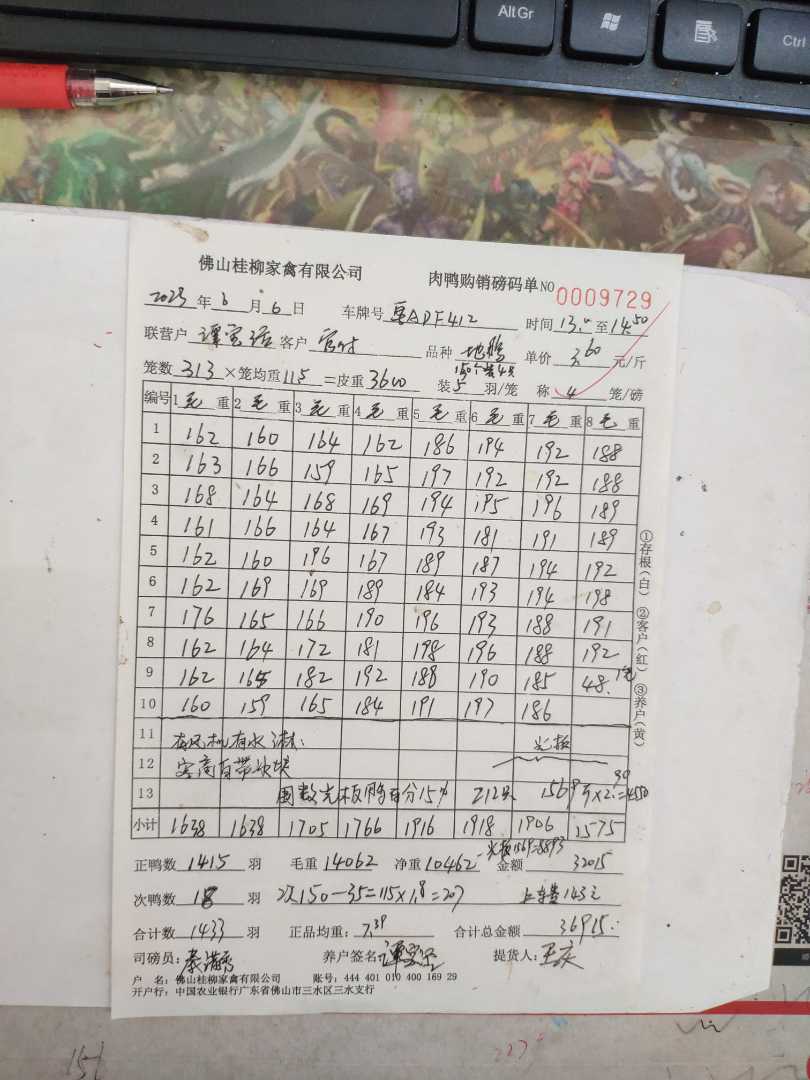 Alt Gr
Ctrl
佛山桂柳家禽有限公司 肉鸭购销磅码单 NO 0009729
2023年6月6日 车牌号 粤ADF412 时间 13.0至14.50
联营户 客户 品种 单价 3.60 元/斤
150个装4只
笼数 313 ×笼均重 11.5 =皮重 3600 装5羽/笼 称4笼/磅
编号 1毛重 2毛重 3毛重 4毛重 5毛重 6毛重 7毛重 8毛重
1 162 160 164 162 186 194 192 188
2 163 166 159 165 197 192 192 188
3 168 164 168 169 194 195 196 189
4 161 166 164 167 193 181 191 189
5 162 160 196 167 189 187 194 192
6 162 169 169 189 184 193 194 198
7 176 165 166 190 196 193 188 191
8 162 164 172 181 198 196 188 192
9 162 165 182 192 188 190 185 48.
10 160 159 165 184 191 197 186
11 有风机有水淋: 光板
12 客商自带
13 光板鸭百分15% 212只 1569斤×2.90=4550
小计 1638 1638 1705 1766 1916 1918 1906 1575
光板1569=8893
正鸭数 1415 羽 毛重 14062 净重 10462 金额 32015
次鸭数 18 羽 次150-35=115×1.8=207 上车费143元
合计数 1433 羽 正品均重: 7.39 合计总金额 36915.
司磅员: 养户签名: 提货人:
户 名: 佛山桂柳家禽有限公司 账号: 444 401 010 400 169 29
开户行: 中国农业银行广东省佛山市三水区三水支行
①存根(白) ②客户(红) ③养户(黄)